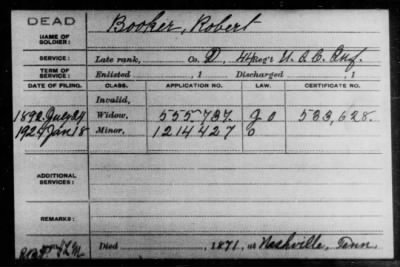 DEAD
NAME OF SOLDIER: Booker, Robert
SERVICE: Late rank, Co. D, 44 Reg't U. S. C. Inf.
TERM OF SERVICE: Enlisted , 1 Discharged , 1
DATE OF FILING. CLASS. APPLICATION NO. LAW. CERTIFICATE NO.
Invalid,
1892 July 29 Widow, 555737. 533,628.
1924 Jan 18 Minor, 1214427
ADDITIONAL SERVICES:
REMARKS:
Died , 1871, at Nashville, Tenn.